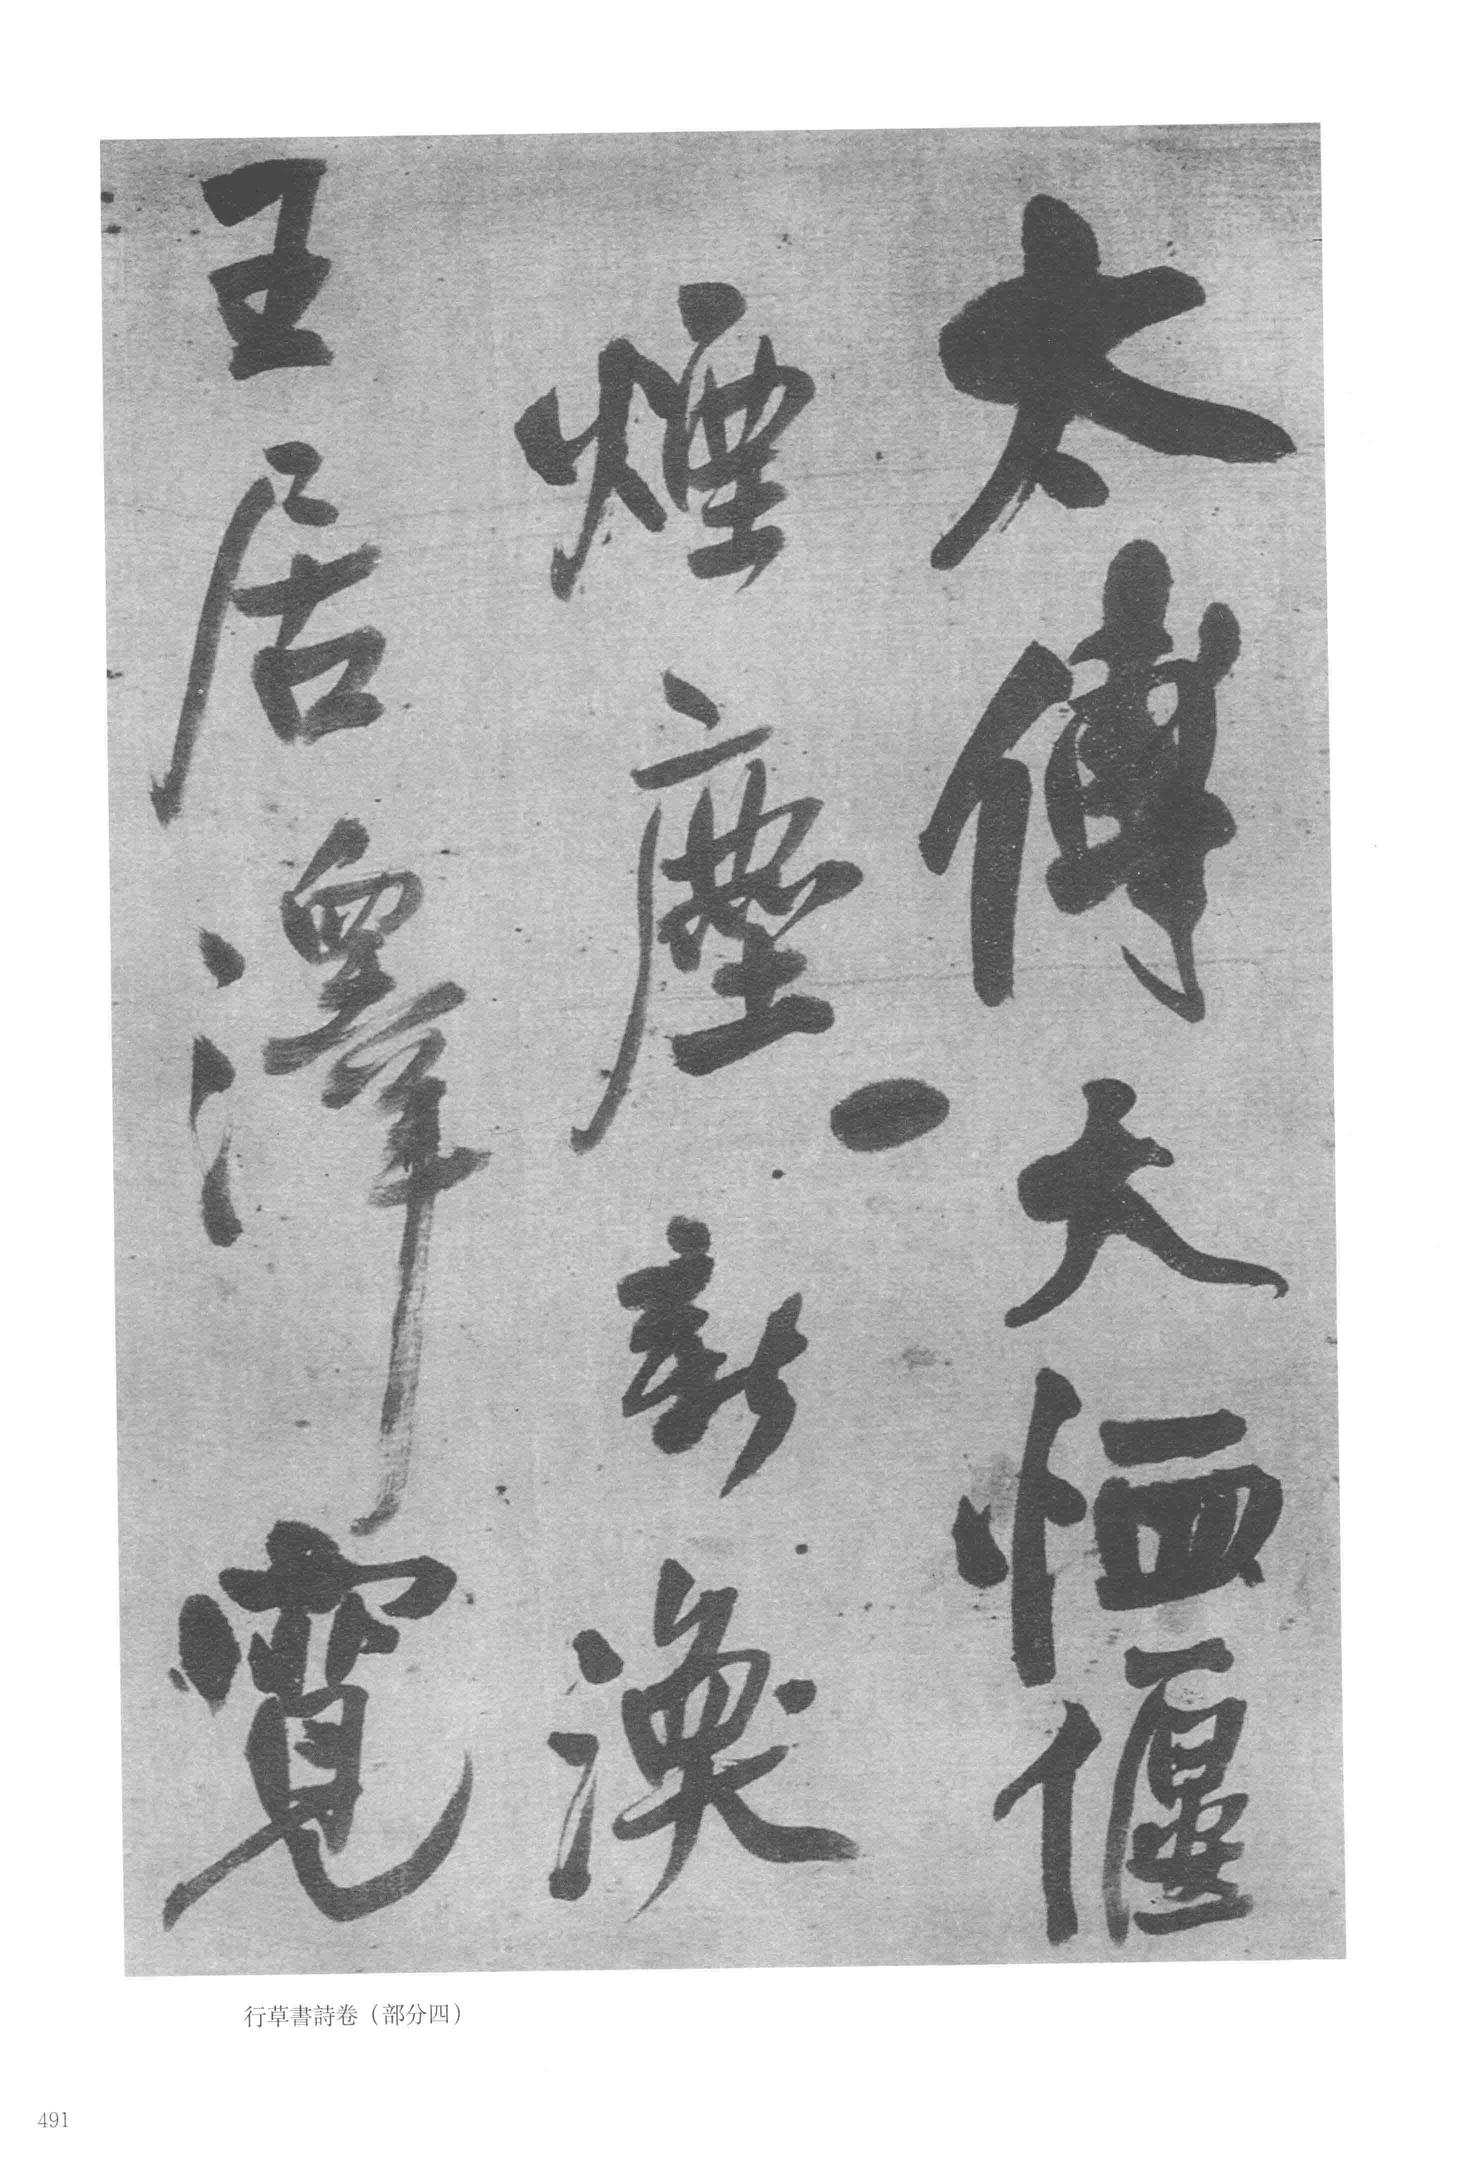 太傅大恤偃
煙塵新渙
王居澤寬
行草書詩卷（部分四）
491